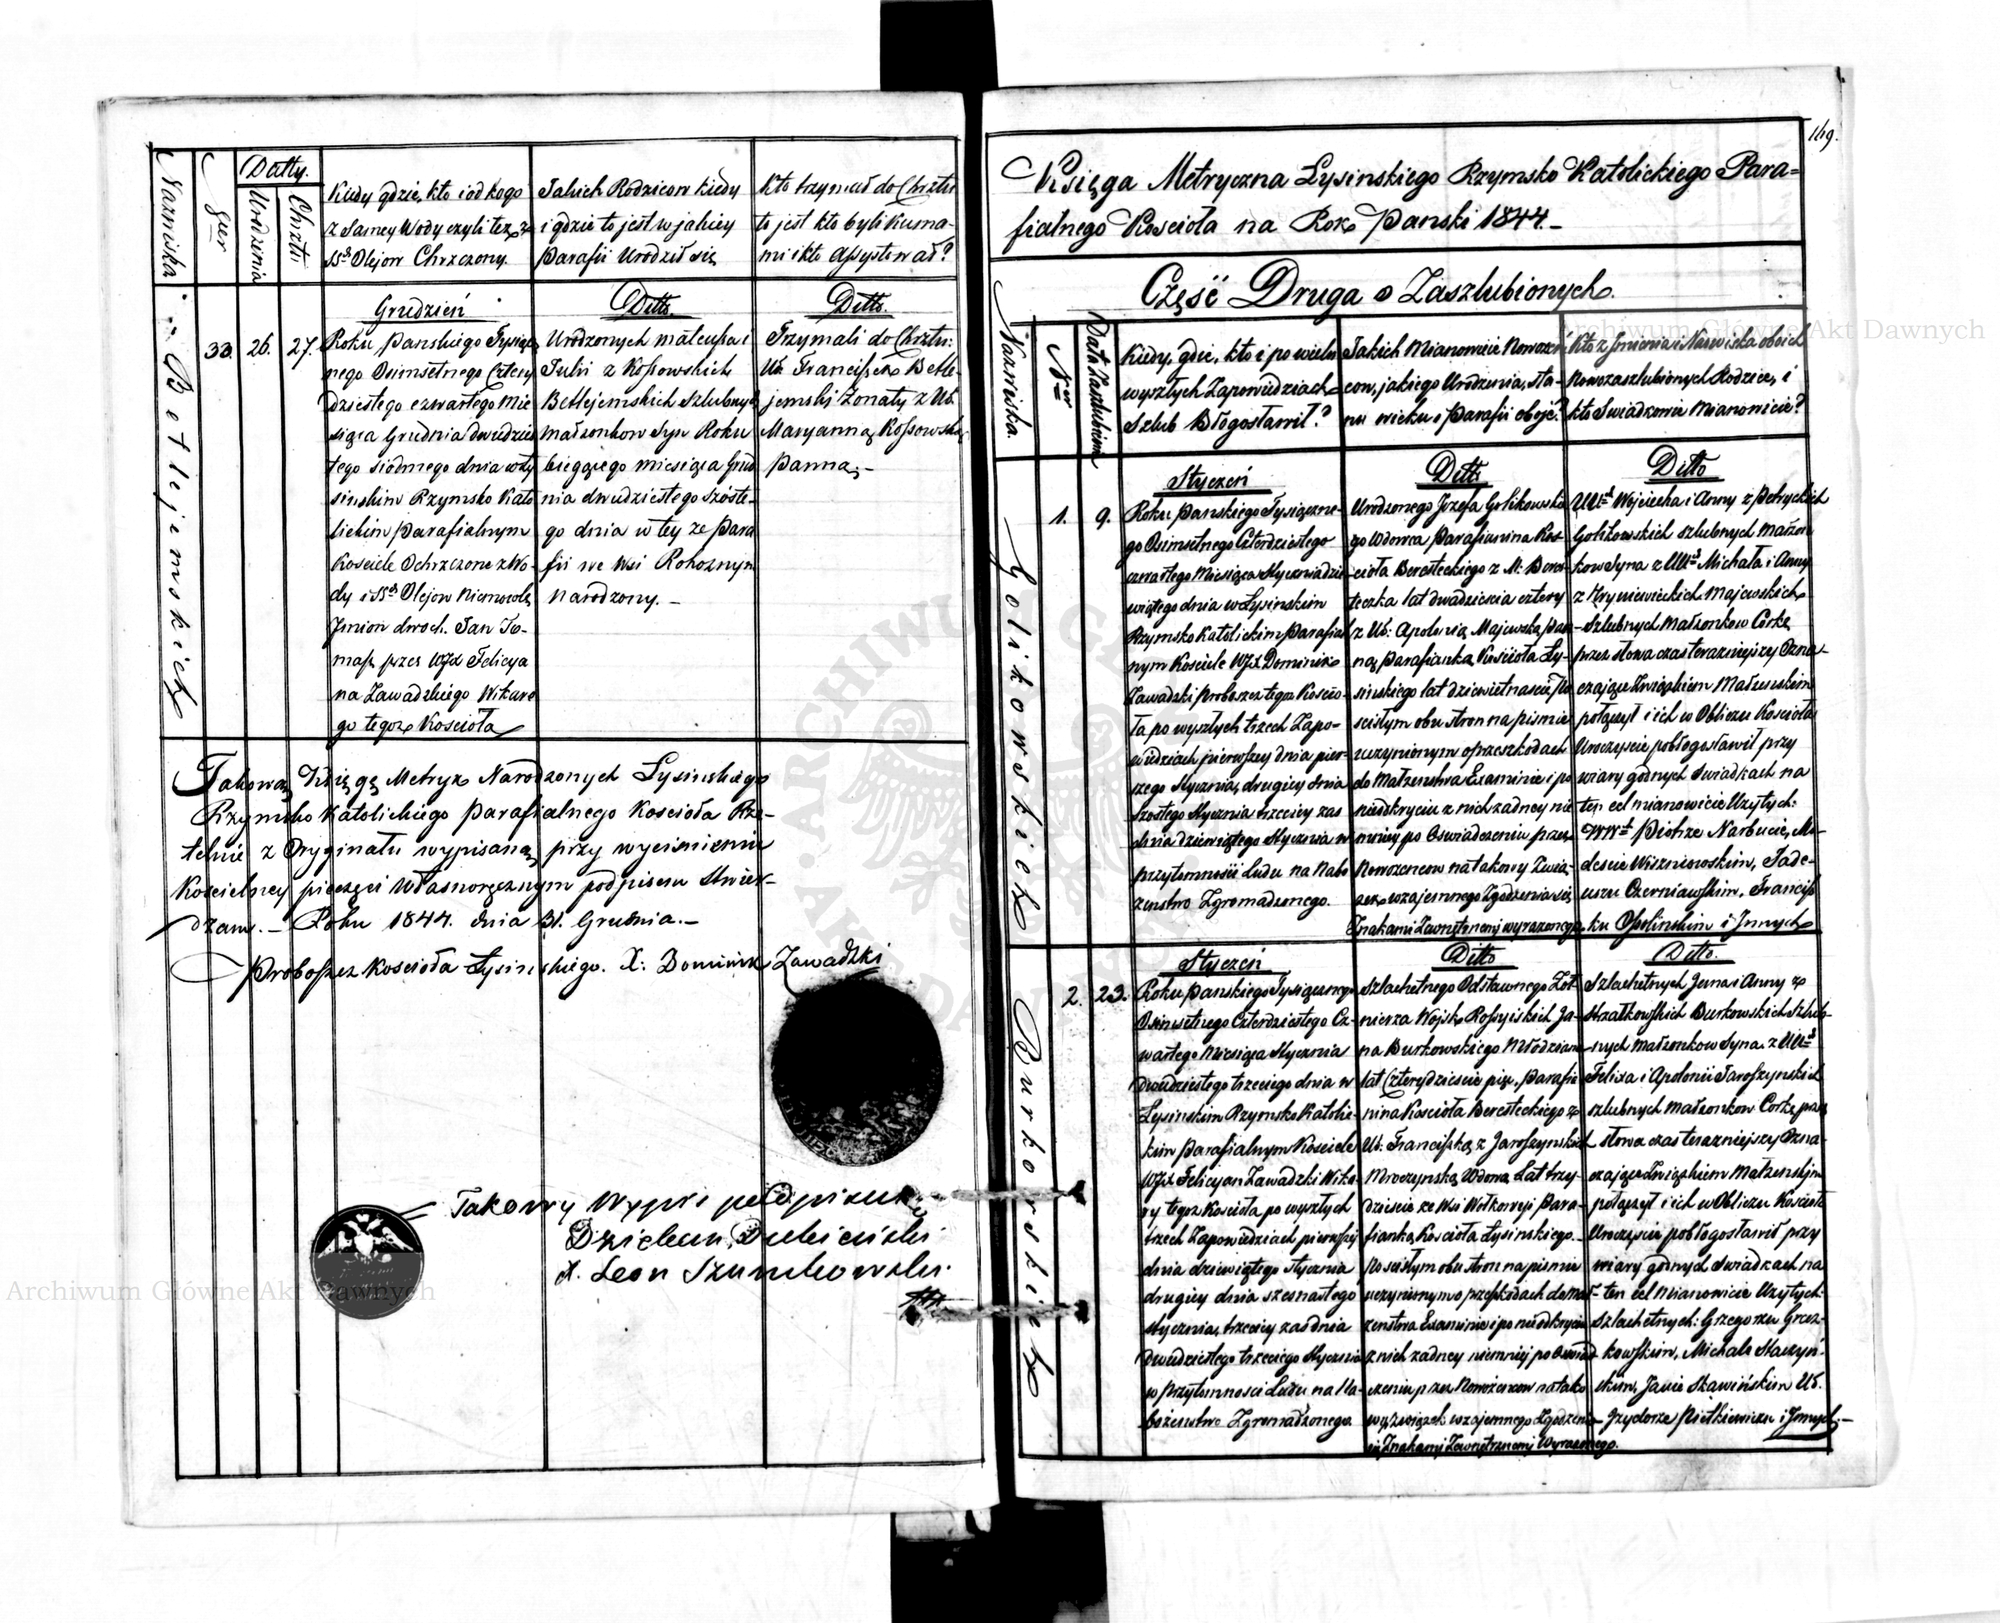 Nazwiska
Ner
Datty.
Urodzenia
Chrztu
Kiedy gdzie, kto i od kogo
z Samey Wody czyli tez z
SSch Olejow Chrzczony.
Jakich Rodzicow kiedy
i gdzie to jest w jakiey
Parafii Urodził się
Kto trzymał do Chrztu
to jest kto byli Kuma-
mi i kto Assystował?
Betlejemskich
33.
26.
27.
Grudzień
Roku Pańskiego Tysiącz
nego Osimsetnego Czterdy
dziestego czwartego Mie
siąca Grudnia dwudzies
tego siódmego dnia w Ły
sinskim Rzymsko Kato
lickim Parafialnym
Kosciele Ochrzczone z Wo
dy i SSch Olejow Niemowle
Jmion dwoch. Jan To-
masz przez WJX Felicya
na Zawadzkiego Wikare
go tegoż Kościoła
Ditto.
Urodzonych Mateusza i
Julii z Kossowskich
Betlejemskich Szlubnych
Małżonkow Syn Roku
bieżącego miesiąca Grud
nia dwudziestego Szóste-
go dnia w tey ze Para
fii we Wsi Rohoznym
narodzony.-
Ditto.
Trzymali do Chrztu:
Ur. Franciszek Betle-
jemski Zonaty z Ur.
Maryanną Kossowską
Panną.-
Takową Xięgę Metryk Narodzonych Łysinskiego
Rzymsko Katolickiego Parafialnego Kościoła Rze-
telnie z Oryginału wypisaną przy wyciśnieniu
Kościelney pieczęci własnoręcznym podpisem Stwier-
dzam.- Roku 1844. dnia 31. Grudnia.-
Proboszcz Kościoła Łysinskiego. X: Dominik Zawadzki
Takowy Wypis podpisuie
Dziekan Dubieński
X. Leon Szumkowski
169.
Księga Metryczna Łysinskiego Rzymsko Katolickiego Para-
fialnego Kościoła na Rok Panski 1844.-
Część Druga o Zaszlubionych.
Nazwiska.
Ner
Data Zaszlubienia
Kiedy, gdzie, kto i po wielu
wyszłych Zapowiedziach
Szlub Błogosławił?
Jakich Mianowicie Nowozen
cow, jakiego Urodzenia, sta-
nu wieku i Parafii oboje?
Kto z Jmienia i Nazwiska oboich
Nowozaszlubionych Rodzice, i
kto Swiadkowie Mianowicie?
Golikowskich
1.
9.
Styczeń
Roku Pańskiego Tysiączne-
go Osimsetnego Czterdziestego
czwartego Miesiąca Stycznia dzie
wiątego dnia w Łysinskim
Rzymsko Katolickim Parafial
nym Kosciele WJX Dominik
Zawadzki Proboszcz tegoż Koscio-
ła po wyszłych trzech Zapo-
wiedziach pierwszey dnia pier-
szego Stycznia, drugiey dnia
Szostego Stycznia trzeciey zas
dnia dziewiątego Stycznia w
przytomności Ludu na Nabo
zenstwo Zgromadzonego.
Ditto
Urodzonego Jozefa Golikowskie
go Wdowca, Parafianina Koś-
cioła Beresteckiego z M: Beres-
teczka lat dwadziescia cztery
z Ur: Apolonią Majewską, Pan-
ną, Parafianką Kościoła Ły-
sinskiego lat dziewietnascie, Po
scisłym obu stron na pismie
uczynionym o przeszkodach
do Małzenstwa Examinie i po
nieodkryciu z nich zadney nie
mniey po Oswiadczeniu przez
Nowozencow na takowy Zwią-
zek wzajemnego Zgodzenia się
Znakami Zewnętrznemi wyrazonego
Ditto
UUch Woyciecha i Anny z Petryckich
Golikowskich szlubnych Małzon
kow Syna z UUch Michała i Anny
z Hryniewieckich Majewskich
Szlubnych Małzonkow Corkę
przez słowa czas teraznieyszy Ozna-
czające Związkiem Małzenskim
połączył i ich w Obliczu Kościoła
Uroczyscie pobłogosławił przy
wiary godnych Swiadkach na
ten cel mianowicie Uzytych:
WWch Piotrze Narbucie, Mo-
descie Wiszniewskim, Tade-
uszu Czerniawskim, Francisz
ku Opolinskim i Jnnych
Burkowskich
2.
23.
Styczeń
Roku Pańskiego Tysiącznego
Osimsetnego Czterdziestego Cz-
wartego Miesiąca Stycznia
dwudziestego trzeciego dnia w
Łysinskim Rzymsko Katolic-
kim Parafialnym Kosciele
WJX Felicyan Zawadzki Wika-
ry tegoż Kościoła po wyszłych
trzech Zapowiedziach pierwszey
dnia dziewiątego Stycznia
drugiey dnia szesnastego
Stycznia, trzeciey zaś dnia
dwudziestego trzeciego Stycznia
w Przytomnosci Ludu na Na-
bożenstwo Zgromadzonego.
Ditto
Szlachetnego Odstawnego Żoł-
nierza Wojsk Rossyiskich Ja-
na Burkowskiego Młodziana
lat Czterydziescie pięc, Parafia
nina Kościoła Beresteckiego z
Ur. Franciszką z Jaroszynskich
Mroczynską Wdową Lat trzy-
dziescie ze Wsi Wołkowyi Para-
fianką Kościoła Łysinskiego.-
Po scisłym obu stron na pismie
uczynionym o przeszkodach do Mał-
zenstwa Examinie i po nieodkryciu
z nich zadney niemniey po Oswiad
czeniu przez Nowozencow na tako
wy Związek wzajemnego Zgodzenia
się Znakami Zewnętrznemi Wyrazonego.
Ditto.
Szlachetnych Jana i Anny z
Strzałkowskich Burkowskich Szlub-
nych Małzonkow Syna. z UUch
Felixa i Apolonii Jaroszynskich
szlubnych Małzonkow Corkę przez
słowa czas teraznieyszy Ozna-
czające Związkiem Małzenskim
połączył i ich w Obliczu Kościoła
Uroczyscie pobłogosławił przy
wiary godnych Swiadkach na
ten cel Mianowicie Uzytych:
Szlachetnych: Grzegorzu Grzecz-
kowskim, Michale Staczyń-
skim, Janie Skawińskim Ur.
Jzydorze Pietkiewiczu i Jnnych.-
Archiwum Główne Akt Dawnych
Archiwum Główne Akt Dawnych